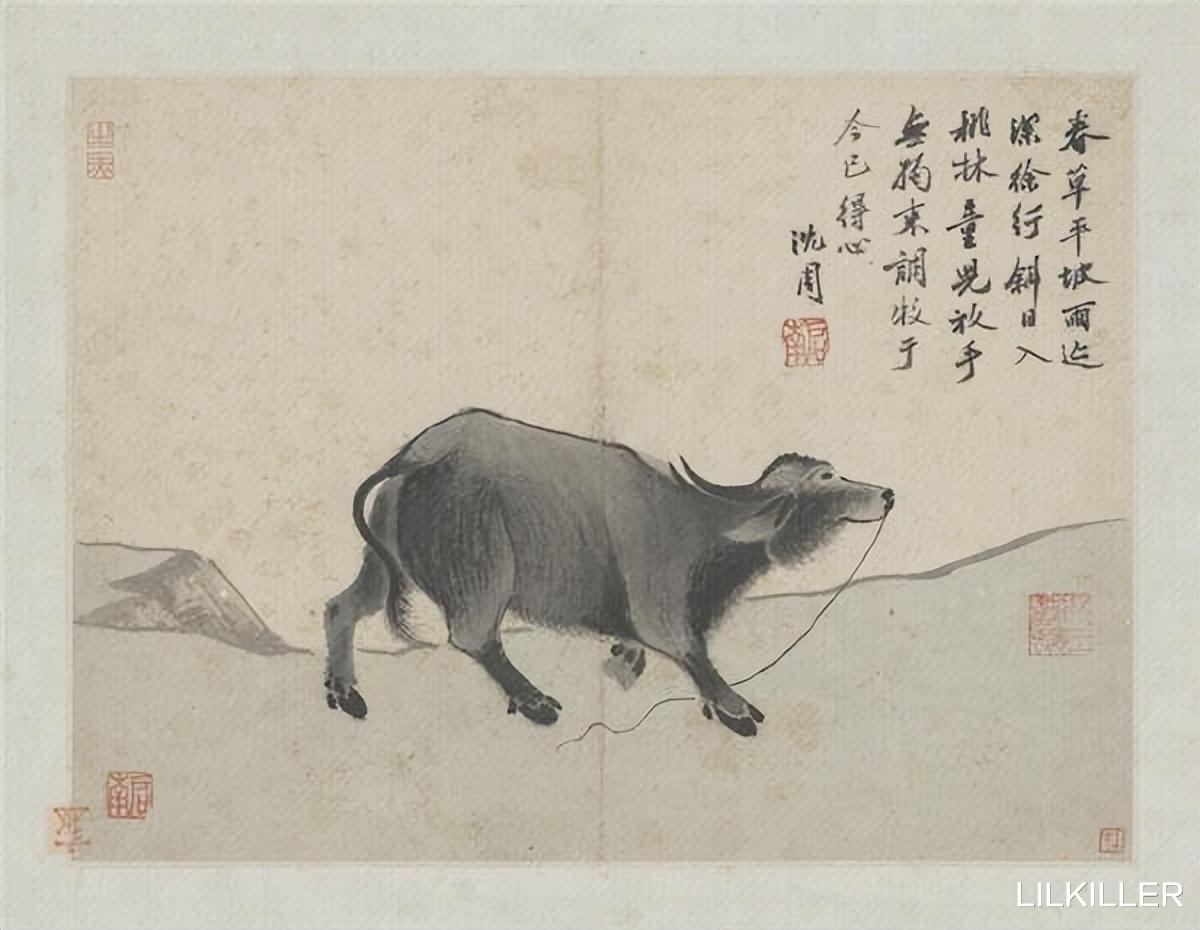 春草平坡雨迹
深徐行斜日入
桃林童児放手
無拘束調牧于
今已得心
沈周
啓南
啓南
LILKILLER